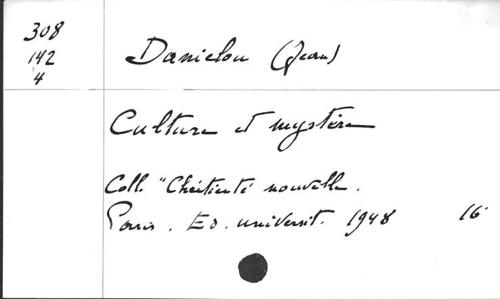 308
142
4
Danielou (Jean)
Culture et mystère
Coll. "Chrétienté nouvelle.
Paris. Ed. universit. 1948 16°